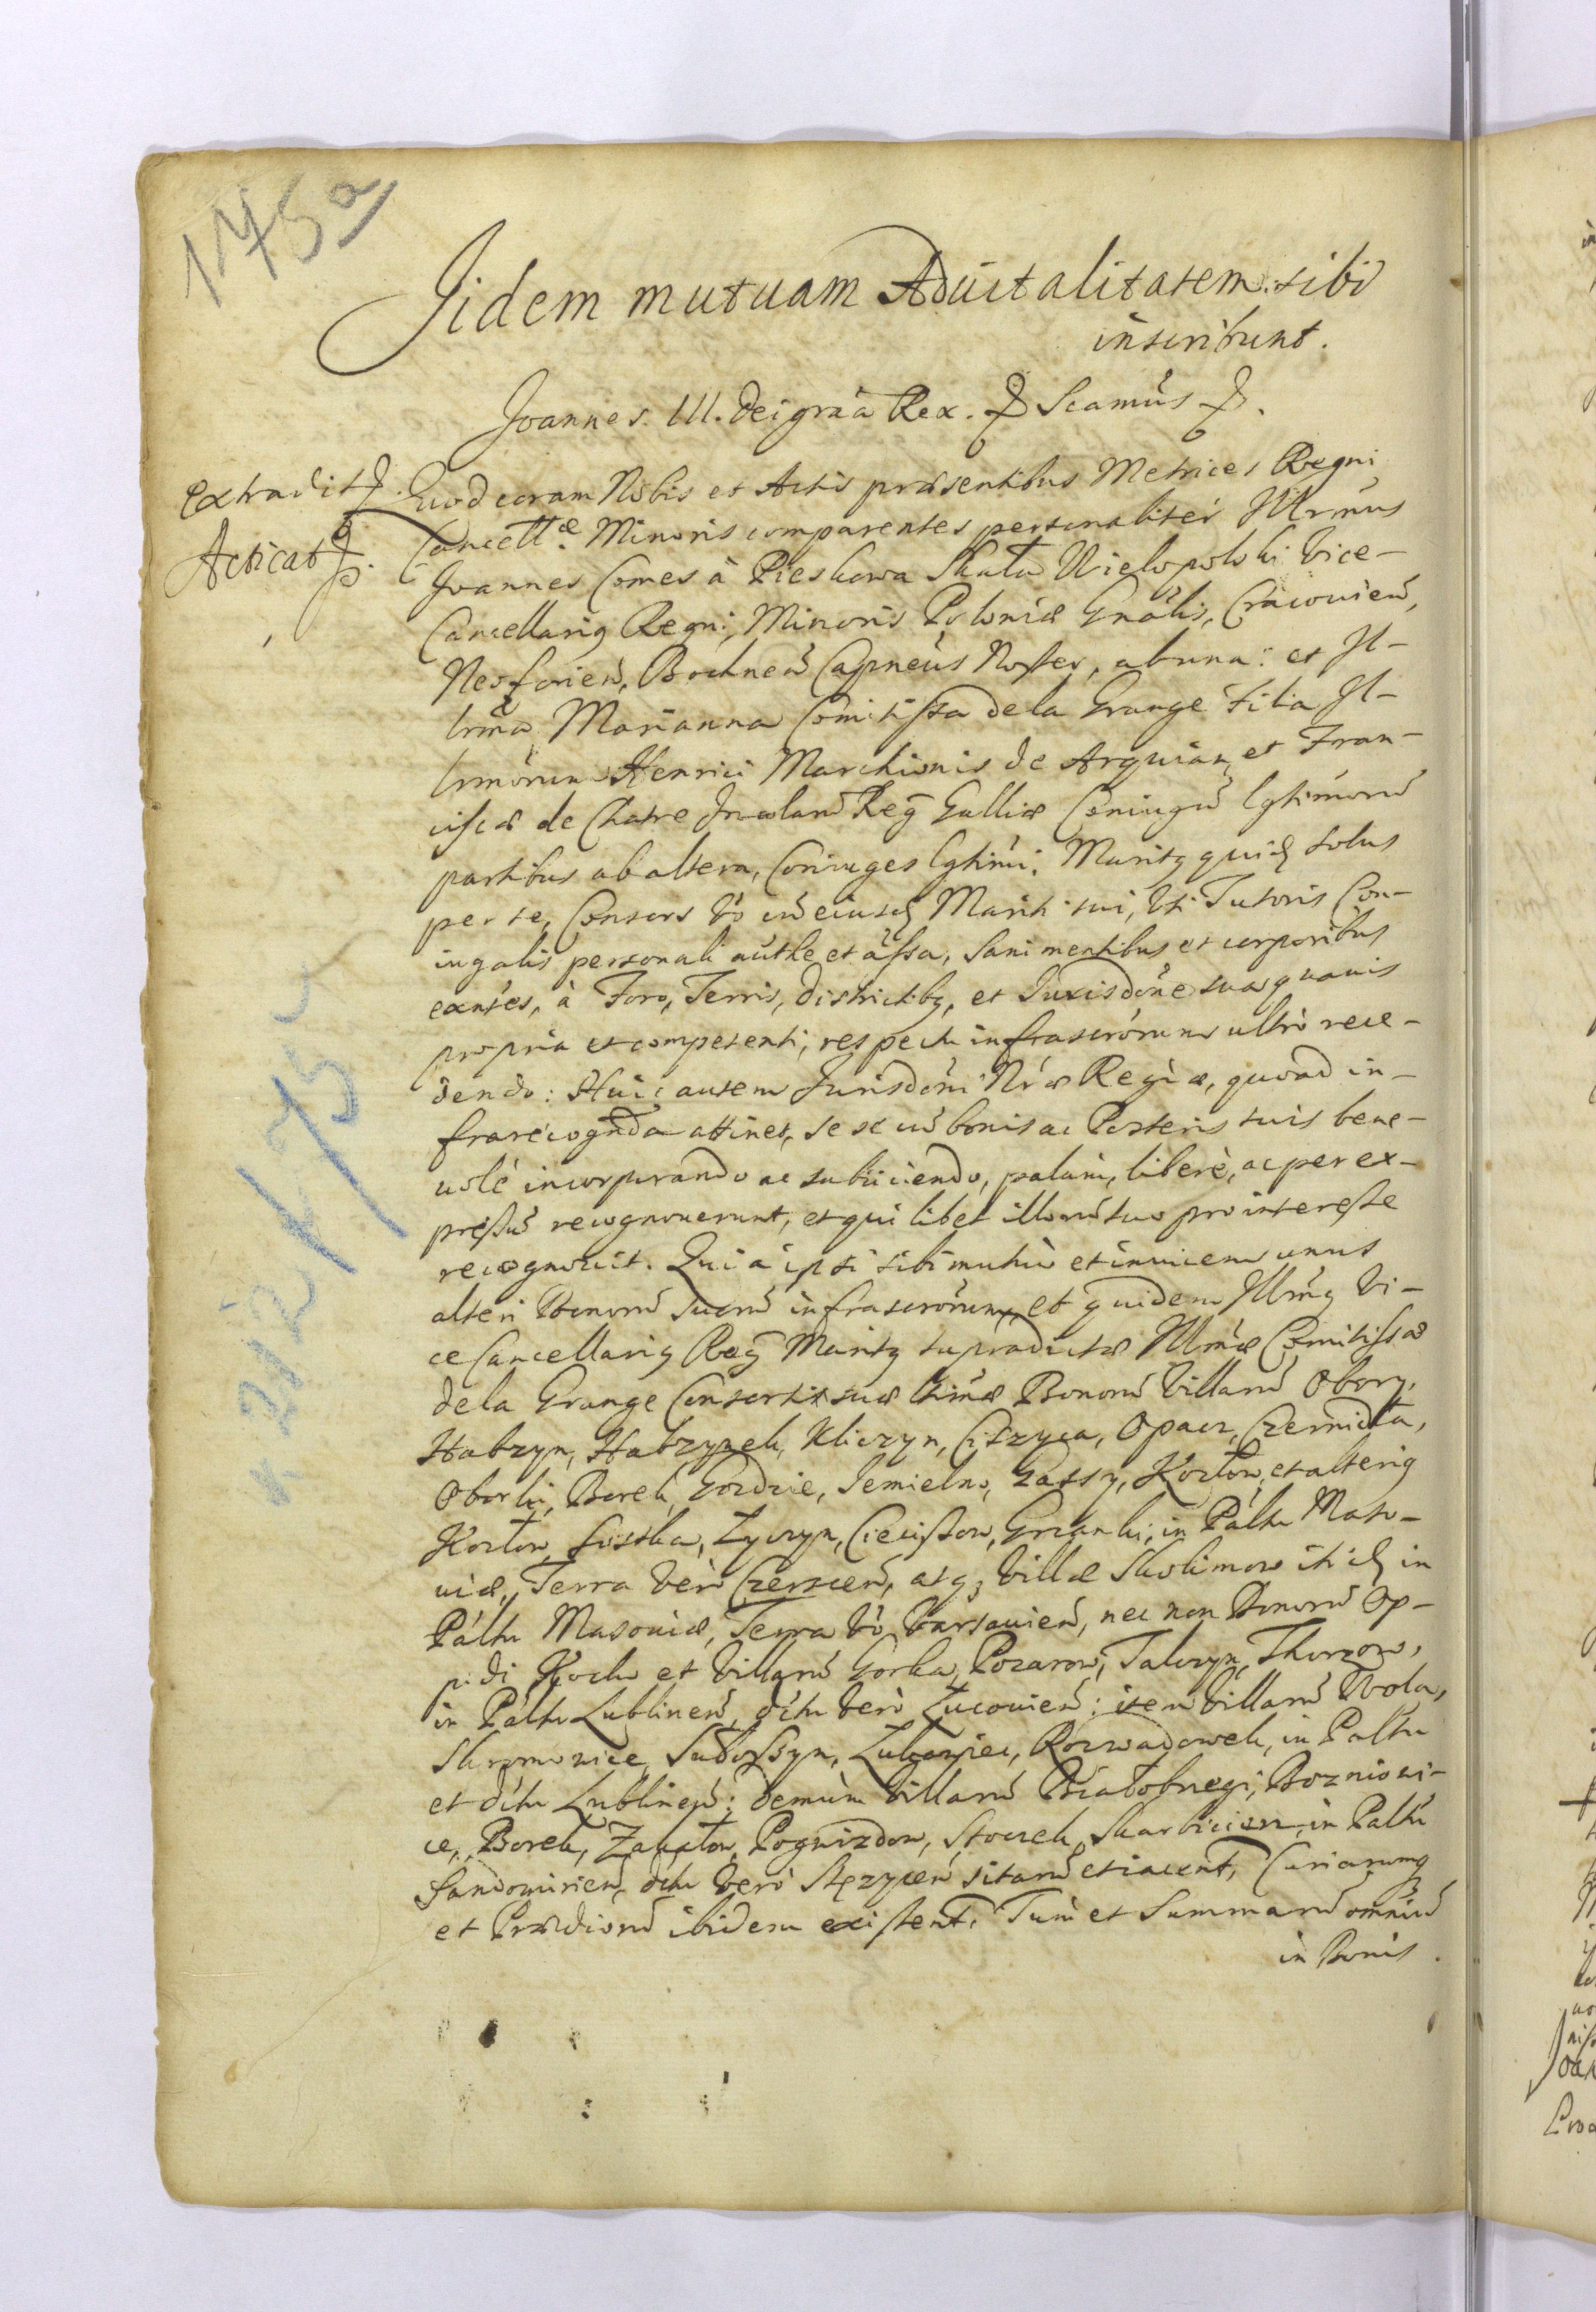 175a
Jidem mutuam Aduitalitatem sibi
inscribunt.
Joannes. III. Dei gratia Rex. Scamus
Extradit
Acticat
Quod coram Nobis et Actis præsentibus Metrices Regni
Cancellæ Minoris comparentes personaliter Illrmus
Joannes Comes à Pieskowa Skała Wielopolski Vice-
Cancellarig Regni, Minoris Poloniæ Gnalis, Cracovien,
Neoforien, Bochnen Capneus Noster, ab una: et Il-
lrma Marianna Comitissa de la Grange filia Il-
lrmorum Henrici Marchionis de Arquian et Fran-
ciscæ de Chatre Incolarū Regi Galliæ Coniugū lgtimorū
partibus ab altera, Coniuges lgtimi. Maritg quid solus
per se, Consors vo cū eiusd Mariti sui, Vti Tutoris Con-
iugalis personali authe et assa, Sani mentibus et corporibus
exntes, à Foro, Terris, districtibg, et Jurisdone sua quauis
propria et competenti, respectu infrascrorum ultrò rece-
dendo: Huic autem Jurisdoni Nræ Regiæ, quoad in-
frarecognda attinet, se se cū bonis ac Posteris suis bene-
uolè incorporando ac subiiciendo, palam, liberè, ac per ex-
pressū recognouerunt, et qui libet illorū suo pro interesse
recognouit. Quia ipsi sibi mutuò et inuicem unus
alteri Bonorū Suorū infrascrorum, et quidem Illrmg Vi-
ce Cancellarig Regi Maritg supradictæ Illrmæ Comitissæ
de la Grange Consorti suæ lhimæ Bonorū Villarū Obory,
Habzyn, Habzynek, Kliczyn, Ciszyca, Opacz, Czernidła,
Oborki, Borek, Gozdzie, Semielno, Gassy, Kozłow, et alterig
Kozłow, Łystka, Lyczyn, Cieciszow, Grzanki, in Paltu Maso-
uiæ, Terra verò Czerscen, atg villæ Skolimow itid in
Paltu Masouiæ, Terra vò Varsauien, nec non Bonorū Op-
pidi Kock et Villarū Gorka, Pozarow, Talczyn, Thorzow,
in Paltu Lublinen, dictu verò Lucouien: item Villarū Wola,
Skromowice, Suboszyn, Rozwadowek, in Paltu
et dictu Lublinen: demùm Villarū Białobrzegi,
ce, Borek, Zakałow, Pognizdow, Stoczek, in Paltu
Sandomirien, dictu verò Stęzycen sitarū et iacent, Curiarumg
et Prædiorū ibidem existent. Tum et Summarū omniū
in Bonis.
k 212 k 175